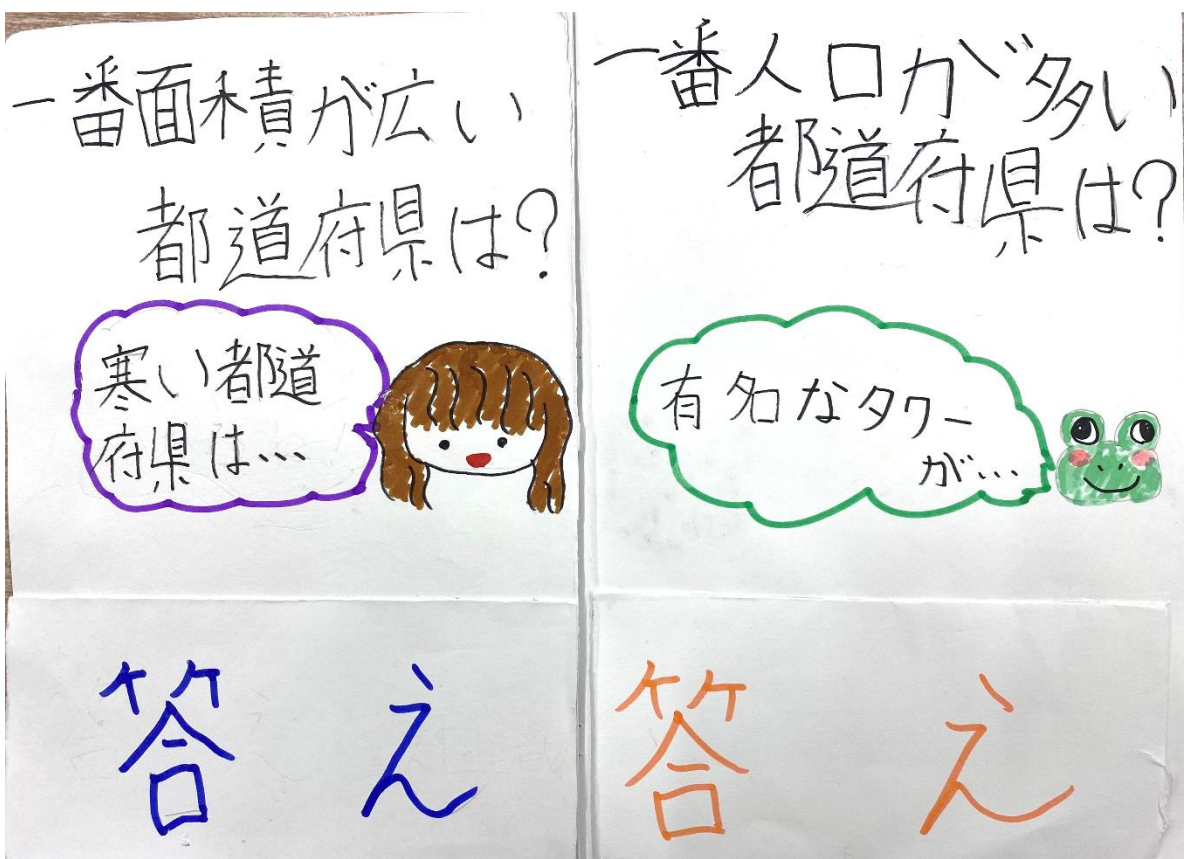 一番面積が広い
都道府県は?
寒い都道
府県は…
答え
一番人口が多い
都道府県は?
有名なタワー
が…
答え